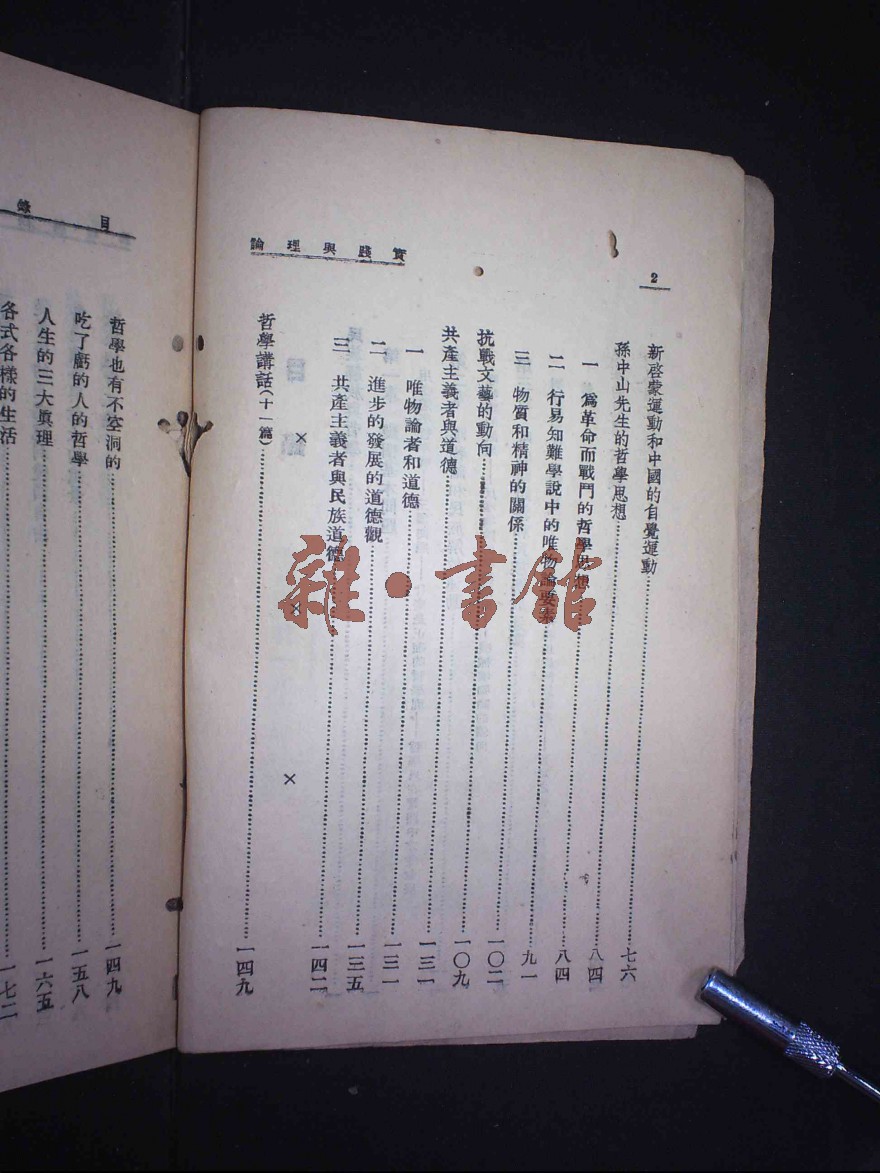 2
實踐與理論
新啓蒙運動和中國的自覺運動……七六
孫中山先生的哲學思想……八四
一　爲革命而戰鬥的哲學思想……八四
二　行易知難學說中的唯物論要素……九一
三　物質和精神的關係……一〇二
抗戰文藝的動向……一〇九
共產主義者與道德……一三一
一　唯物論者和道德……一三一
二　進步的發展的道德觀……一三五
三　共產主義者與民族道德……一四二
×　×　×
哲學講話(十一篇)……一四九
目錄
哲學也有不空洞的……一四九
吃了虧的人的哲學……一五八
人生的三大眞理……一六五
各式各樣的生活……一七二
雜·書館